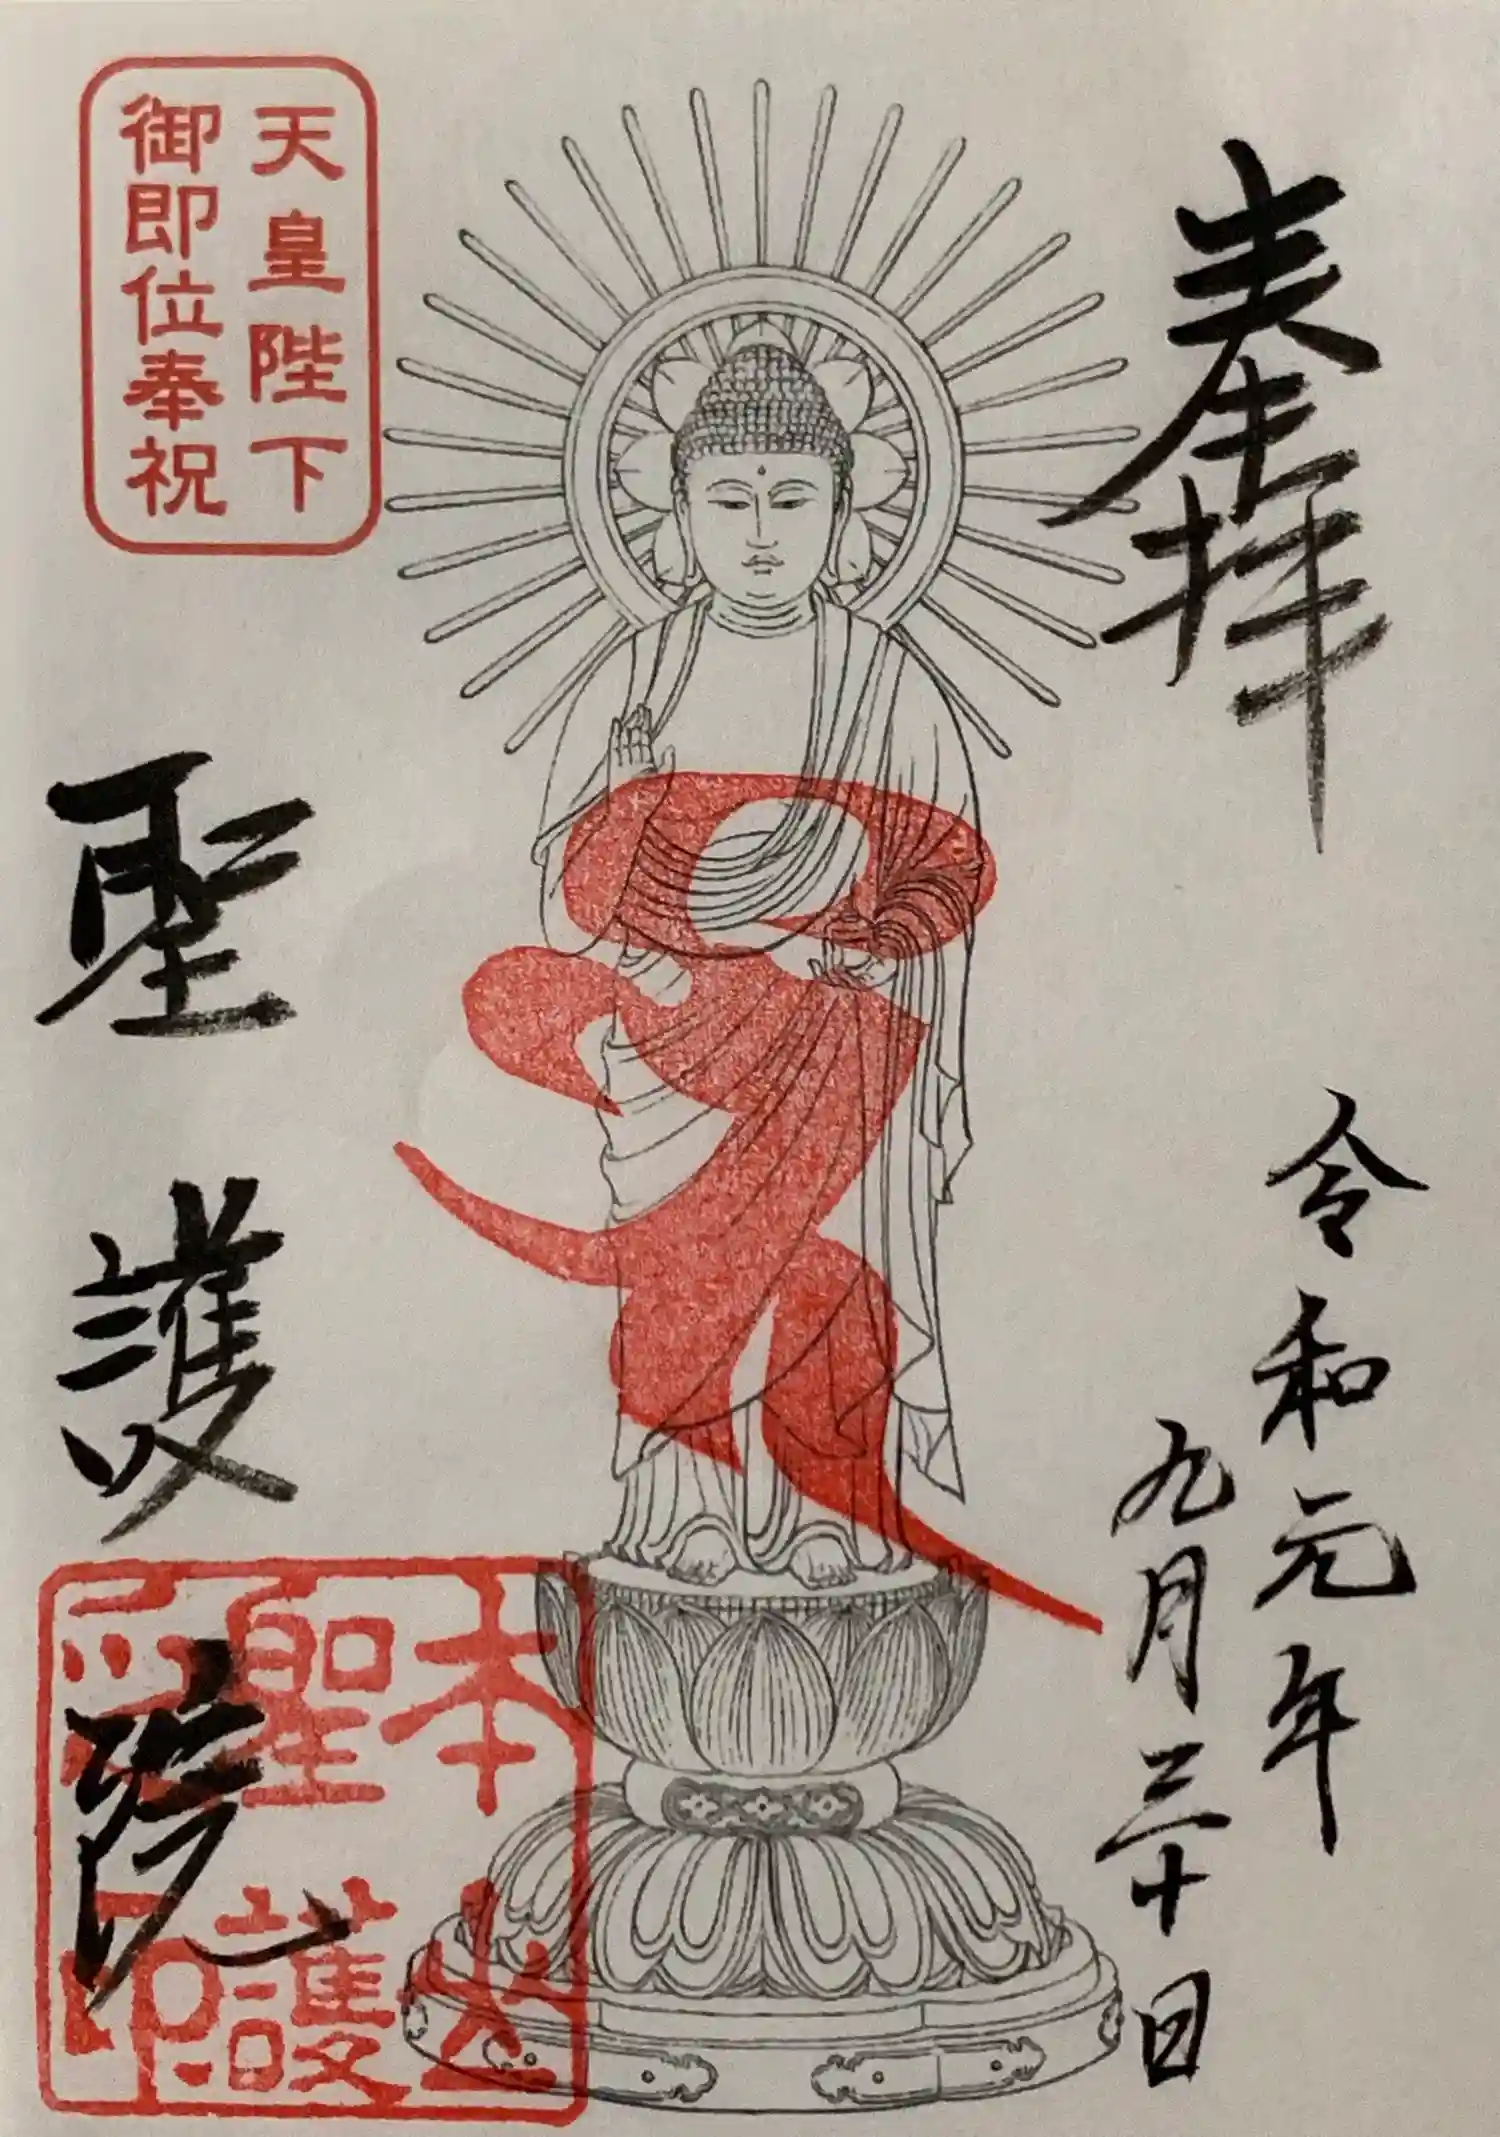 奉拝
令和元年
九月三十日
天皇陛下
御即位奉祝
聖護院
本山
聖護
院印